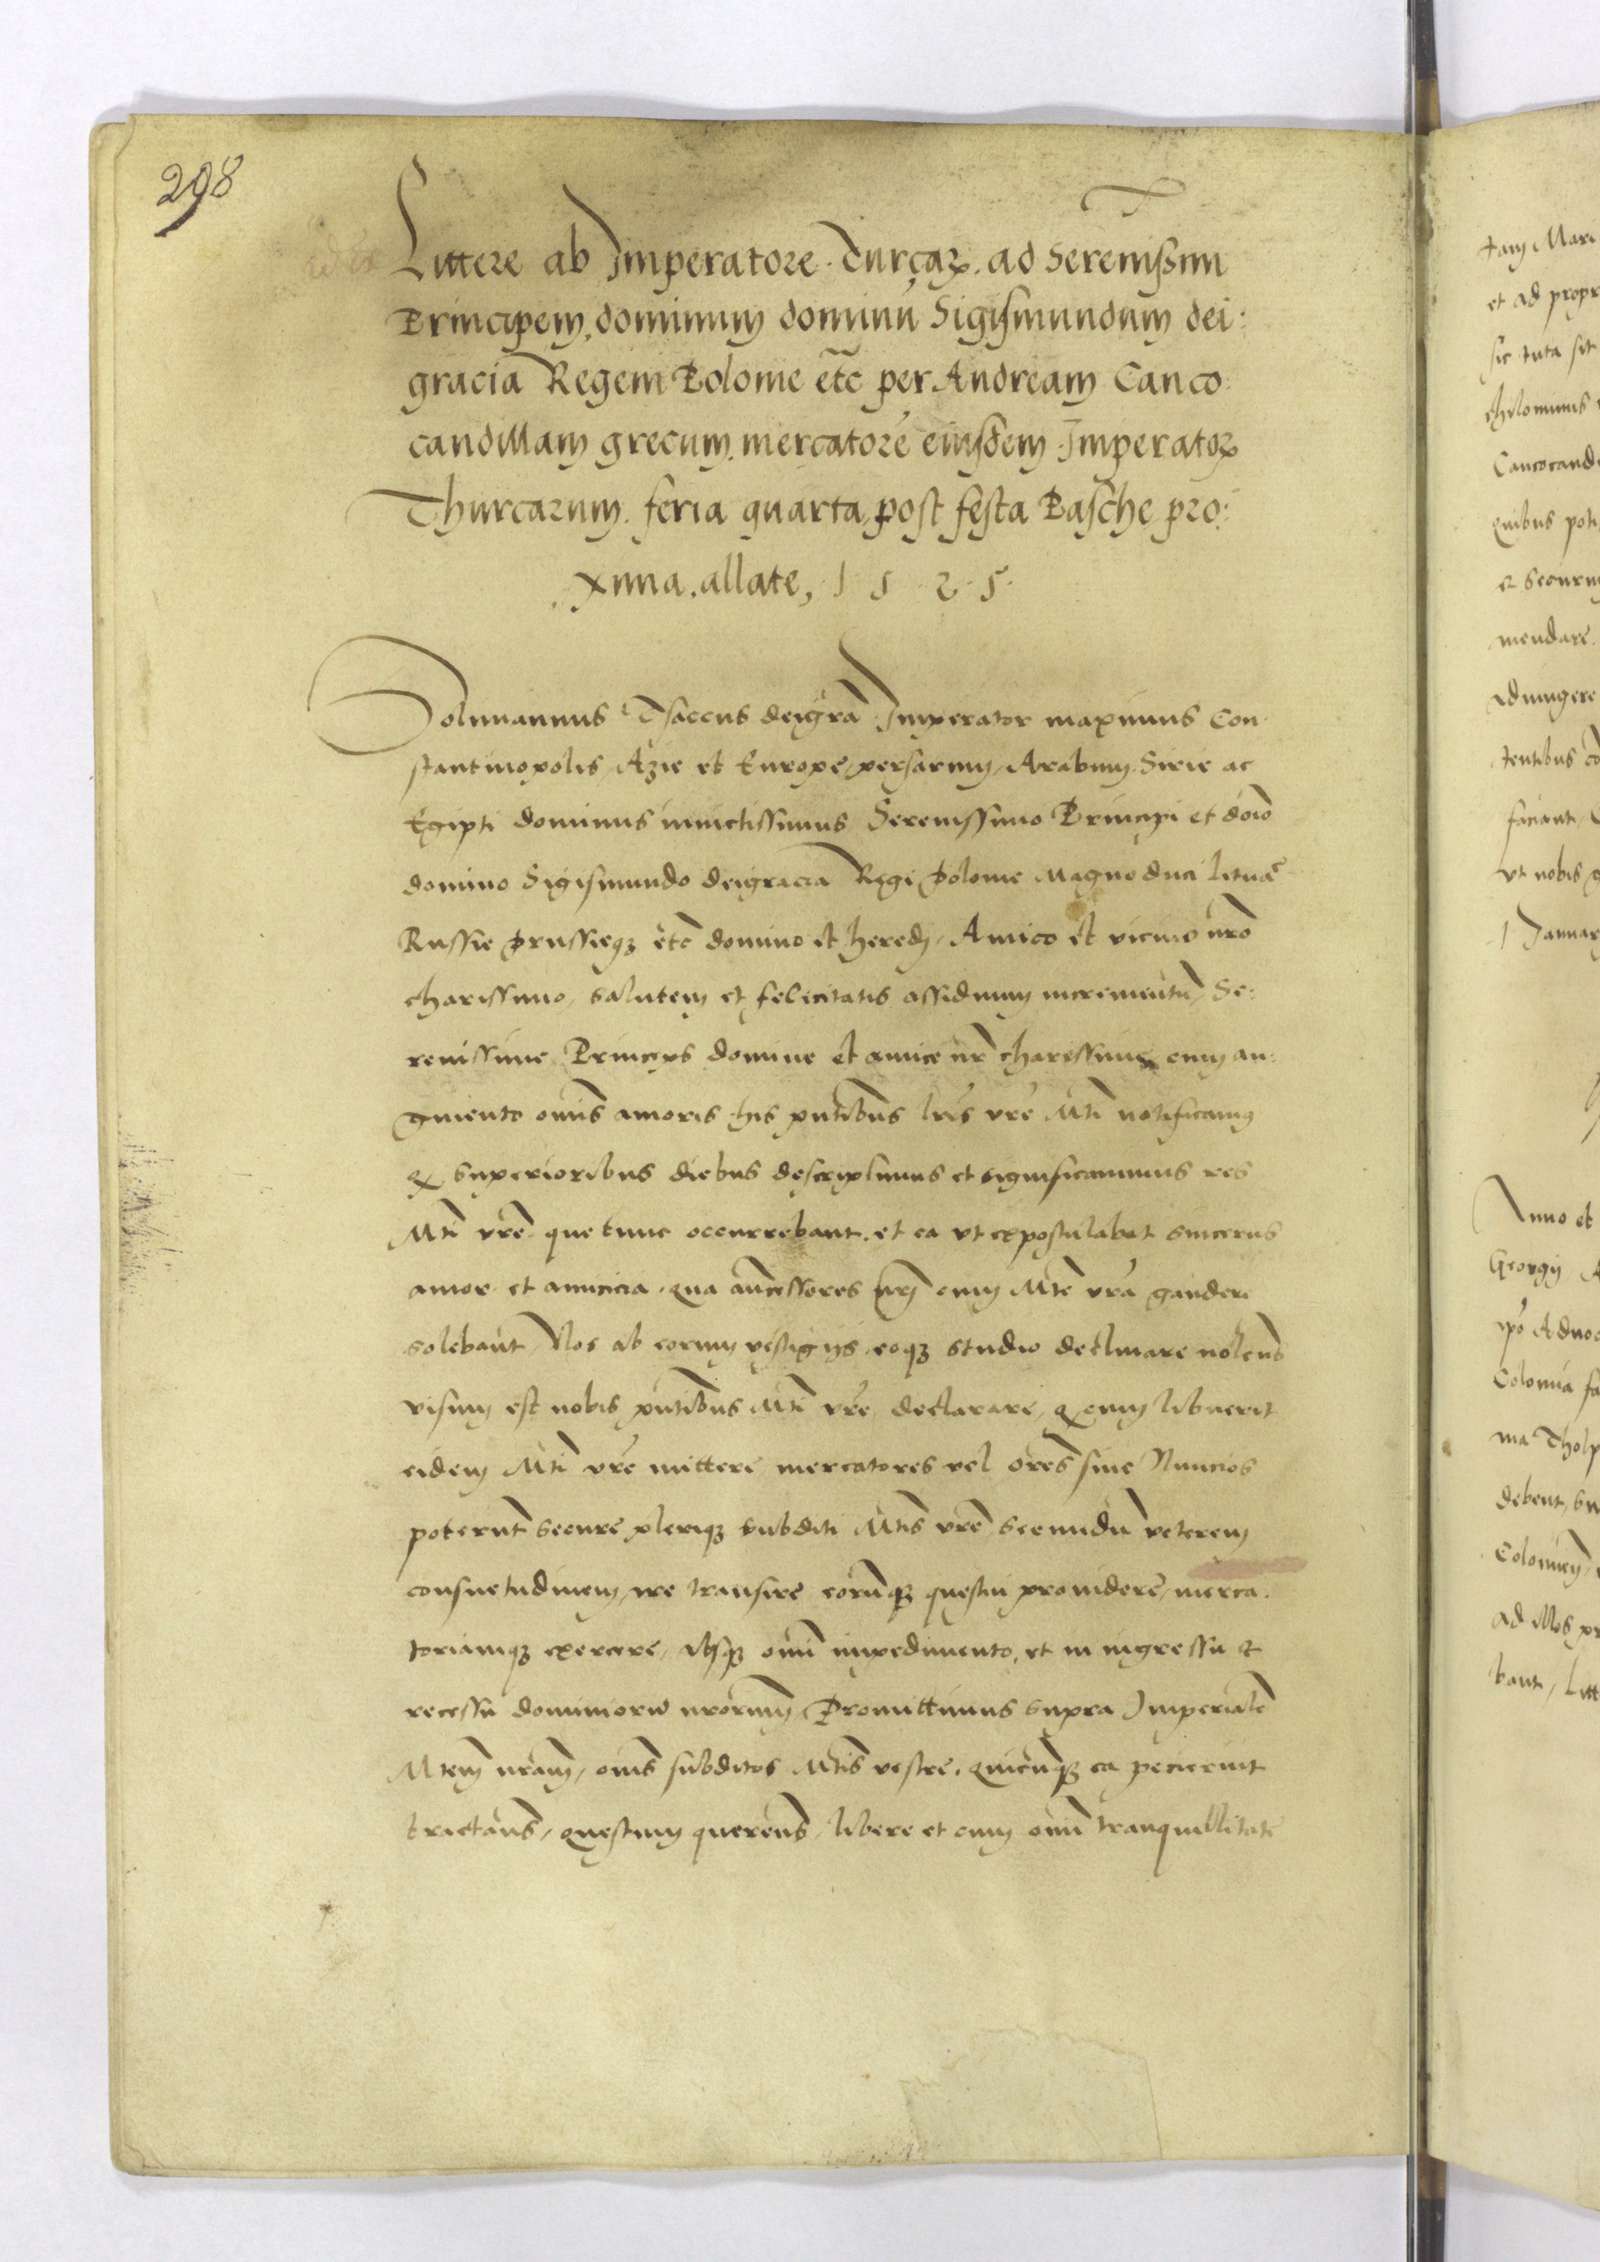 298
Littere ab Imperatore Turcarꝝ ad Serenissim̄
Principem dominum dominū Sigismundum dei
gracia Regem Polonie etc̄ per Andream Canco
candillam grecum mercatorē eiusdem Imperatorꝝ
Thurcarum feria quarta post festa Pasche pro:
xima allate, 1525
Solimannus Tsaccus dei gr̄a Imperator maximus Con
stantinopolis, Azie et Europe, persarum, Arabum Sirie ac
Egipti dominus inuictissimus Serenissimo Principi et dōio
domino Sigismundo dei gracia Regi Polonie Magno duci lituāe
Russie Prussieqꝫ etc̄ domino et heredi, Amico et vicino nr̄o
charissimo, salutem et felicitatis assiduum incrementū, Se:
renissime Princeps domine et amice nr̄ charissime cum au:
gmento om̄is amoris his pn̄tibus lr̄is vr̄e Mti notificamus
ꝙ superioribus diebus descripsimus et significauimus res
Mti vr̄e que tunc occurrebant, et ea vt expostulabat sincerus
amor et amicicia qua ancessores nr̄j cum Mte vr̄a gaudere
solebant, Nos ab eorum vestigijs eoqꝫ studio declinare nolens
visum est nobis pn̄tibus Mti vr̄e declarare, ꝙ cum libuerit
eidem Mti vr̄e mittere mercatores vel or̄es siue Nuncios
poterunt secure pleriqꝫ subditi Mtis vr̄e secundū veterem
consuetudinem, ire transire eorumqꝫ questui prouidere, merca
toriamqꝫ exercere, absqꝫ om̄i impedimento, et in ingressu et
recessu dominiorū nr̄orum, Promittimus supra Imperialē
Mtem nr̄am, om̄s subditos Mtis vestre, quicunqꝫ ea pecierint
tractans, questum querens, libere et cum om̄i tranquillitate
tam Mari
et ad propr
sic tuta sit
chilominus
Cancocand
quibus poti
mendare
adiungere
tentibus
faciant,
vt nobis
Januar
Anno et
Georgij
Colonia fa
debent, su
ad illos pr
bant, Litt